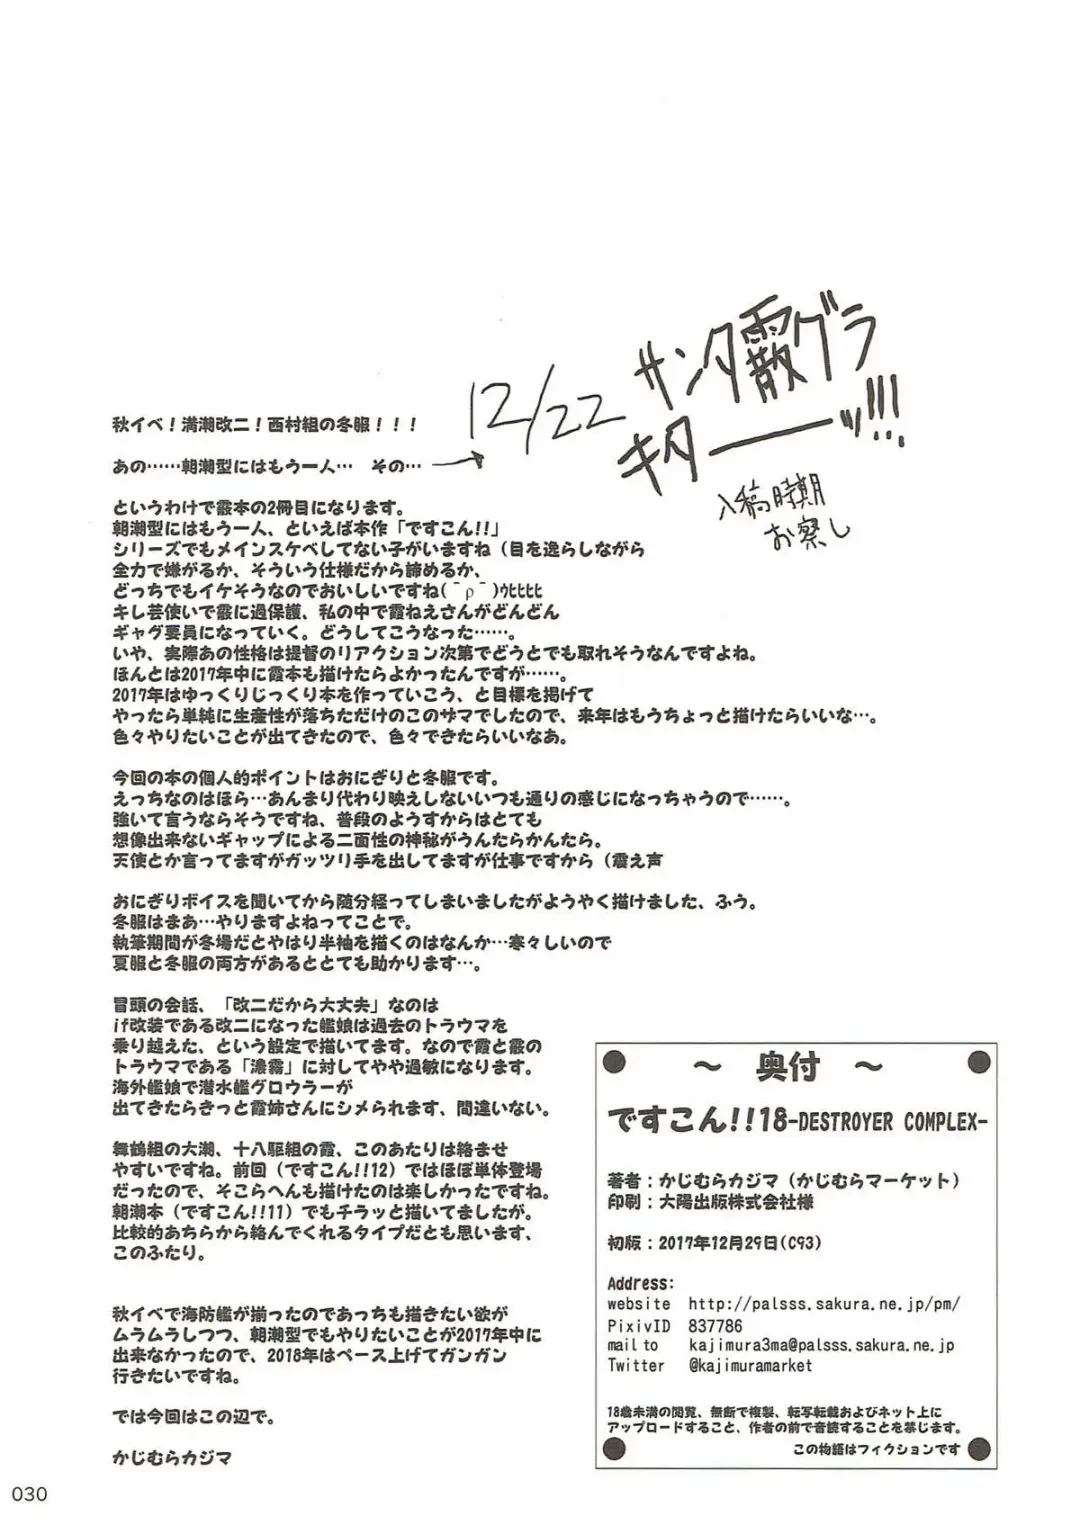 12/22
サンタ霰グラ
キターーッ!!!
入稿時期
お察し
秋イベ！満潮改二！西村組の冬服！！！
あの……朝潮型にはもう一人…　その…
というわけで霰本の2冊目になります。
朝潮型にはもう一人、といえば本作「ですこん!!」
シリーズでもメインスケベしてない子がいますね（目を逸らしながら
全力で嫌がるか、そういう仕様だから諦めるか、
どっちでもイケそうなのでおいしいですね(¯ρ¯)ｳﾋﾋﾋﾋ
キレ芸使いで霰に過保護、私の中で霞ねえさんがどんどん
ギャグ要員になっていく。どうしてこうなった……。
いや、実際あの性格は提督のリアクション次第でどうとでも取れそうなんですよね。
ほんとは2017年中に霞本も描けたらよかったんですが……。
2017年はゆっくりじっくり本を作っていこう、と目標を掲げて
やったら単純に生産性が落ちただけのこのザマでしたので、来年はもうちょっと描けたらいいな…。
色々やりたいことが出てきたので、色々できたらいいなあ。
今回の本の個人的ポイントはおにぎりと冬服です。
えっちなのはほら…あんまり代わり映えしないいつも通りの感じになっちゃうので……。
強いて言うならそうですね、普段のようすからはとても
想像出来ないギャップによる二面性の神秘がうんたらかんたら。
天使とか言ってますがガッツリ手を出してますが仕事ですから（震え声
おにぎりボイスを聞いてから随分経ってしまいましたがようやく描けました、ふう。
冬服はまあ…やりますよねってことで。
執筆期間が冬場だとやはり半袖を描くのはなんか…寒々しいので
夏服と冬服の両方があるととても助かります…。
冒頭の会話、「改二だから大丈夫」なのは
if改装である改二になった艦娘は過去のトラウマを
乗り越えた、という設定で描いてます。なので霞と霰の
トラウマである「濃霧」に対してやや過敏になります。
海外艦娘で潜水艦グロウラーが
出てきたらきっと霞姉さんにシメられます、間違いない。
舞鶴組の大潮、十八駆組の霞、このあたりは絡ませ
やすいですね。前回（ですこん!!12）ではほぼ単体登場
だったので、そこらへんも描けたのは楽しかったですね。
朝潮本（ですこん!!11）でもチラッと描いてましたが。
比較的あちらから絡んでくれるタイプだとも思います、
このふたり。
秋イベで海防艦が揃ったのであっちも描きたい欲が
ムラムラしつつ、朝潮型でもやりたいことが2017年中に
出来なかったので、2018年はペース上げてガンガン
行きたいですね。
では今回はこの辺で。
かじむらカジマ
～　奥付　～
ですこん!!18-DESTROYER COMPLEX-
著者：かじむらカジマ（かじむらマーケット）
印刷：大陽出版株式会社様
初版：2017年12月29日(C93)
Address:
website　http://palsss.sakura.ne.jp/pm/
PixivID　837786
mail to　kajimura3ma@palsss.sakura.ne.jp
Twitter　@kajimuramarket
18歳未満の閲覧、無断で複製、転写転載およびネット上に
アップロードすること、作者の前で音読することを禁じます。
この物語はフィクションです
030